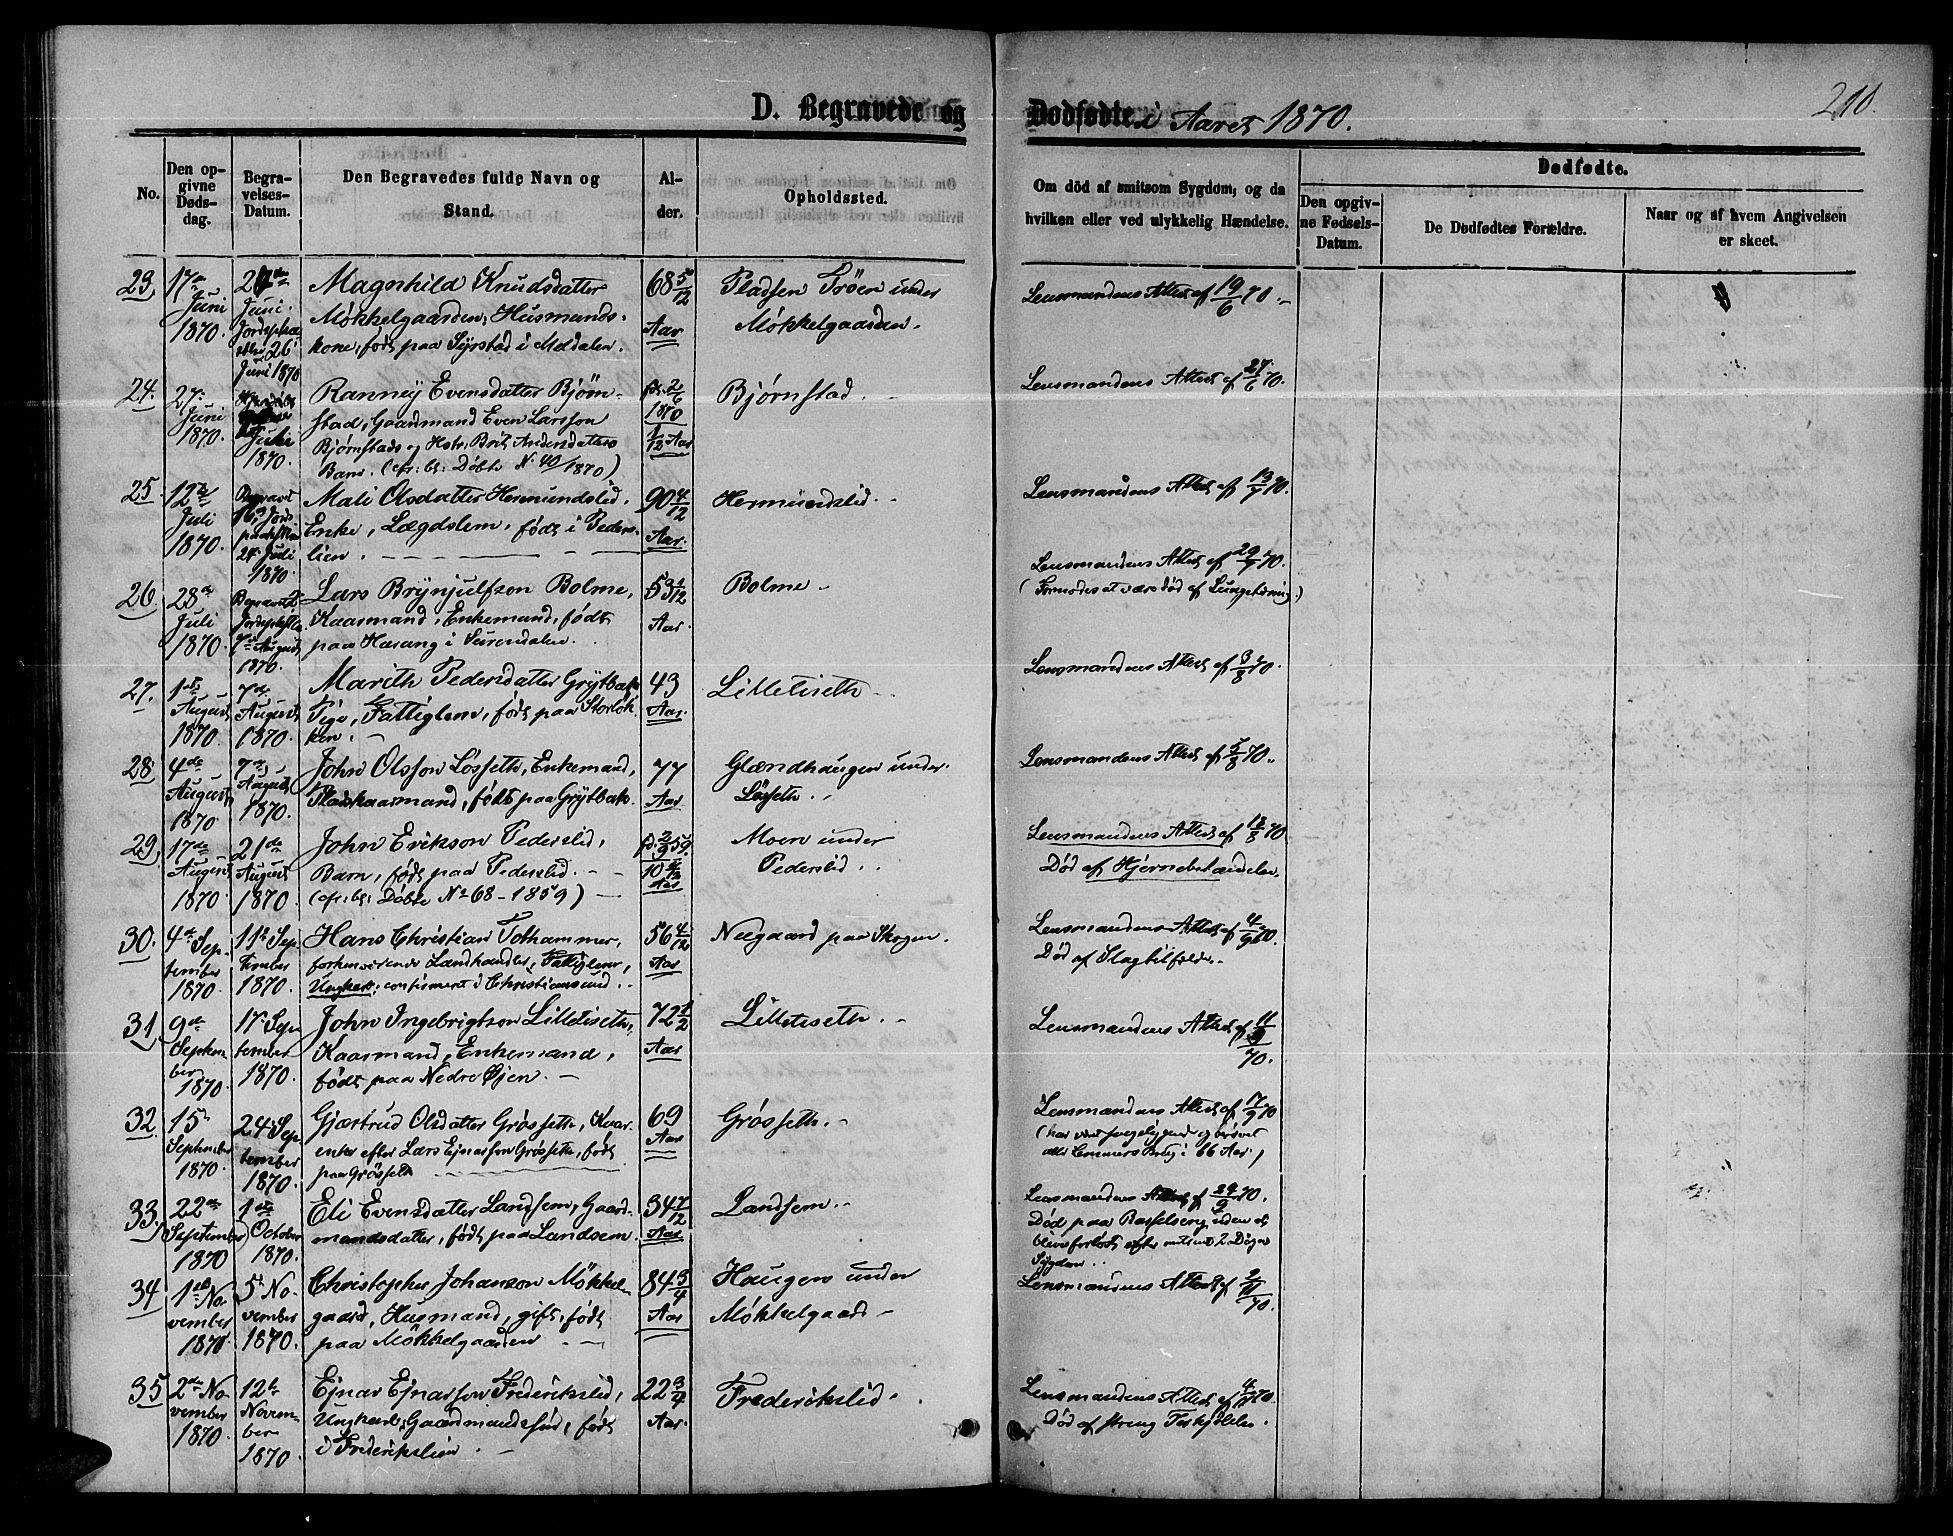 D. Begravede og Dødfødte i Aaret 1870.
210.
No.
Den opgivne Dødsdag.
Begravelses-Datum.
Den Begravedes fulde Navn og Stand.
Alder.
Opholdssted.
Om død af smitsom Sygdom, og da hvilken eller ved ulykkelig Hændelse.
Dødfødte.
Den opgivne Fødsels-Datum.
De Dødfødtes Forældre.
Naar og af hvem Angivelsen er skeet.
23, 17de Juni 1870.
26 Juni 1870
Magnhild Knudsdatter
Møkkelgaarden, Husmands-
kone, født paa Syrstad i Meldalen.
68 5/12 Aar
Pladsen Trøen under
Møkkelgaarden.
Lensmandens Attest af 19/6 70.
24. 27de Juni 1870.
Juli 1870.
Ranney Evensdatter Bjørn-
stad, Gaardmand Even Larsson
Bjørnstads og Hstr. Brit Andersdatters
Barn. (cfr. bl: Døbte No 40/1870)
f. 2/6 1870
1/12 Aar
Bjørnstad.
Lensmandens Attest af 27/6 70.
25. 12te Juli 1870.
Begravet 16de
24. Juli 1870.
Mali Olsdatter Hermundslid,
Enke, Lægdslem, født i Peders-
lien.
90 4/12 Aar.
Hermundslid.
Lensmandens Attest af 13/7 70.
26. 28de Juli 1870.
Begravet
7de August 1870.
Lars Brynjulfson Bolme,
Kaarmand, Enkemand, født
paa Harang i Surendalen.
53 1/12 Aar.
Bolme.
Lensmandens Attest af 29/7 70.
(Formodes at være død af Lungetæring.)
27. 1ste August 1870.
7de August 1870.
Marith Pedersdatter Grytbak
Pige, Fattiglem, født paa Storløk-
ken.
43 Aar.
Lilletiseth
Lensmandens Attest af 3/8 70.
28. 4de August 1870.
7de August 1870.
John Olsson Løsseth, Enkemand,
Pladskaarmand, født paa Grytbak.
77 Aar.
Glændhaugen under
Løsseth.
Lensmandens Attest af 5/8 70.
29, 17de August 1870.
21de August 1870.
John Erikson Pederslid,
Barn, født paa Pederslid.
(cfr. bl: Døbte No 68 - 1859)
f. 2/9 59.
Aar
Moen under
Pederslid.
Lensmandens Attest af 18/8 70
Død af Hjernebetændelse.
30. 4de September 1870.
11te September 1870.
Hans Christian Folhammer,
forhenværende Landhandler, Fattiglem,
Ungkarl, confirmeret i Christiansund.
56 4/12 Aar
Neegaard paa Skogen.
Lensmandens Attest af 4/9 70.
Død af Slagtilfælde.
31, 9de September 1870.
17de September 1870.
John Ingebrigtson Lilletiseth,
Kaarmand, Enkemand,
født paa Nedre Øjen.
72 1/2 Aar
Lilletiseth.
Lensmandens Attest af 11/9 70.
32. 15de September 1870.
24 September 1870.
Gjertrud Olsdatter Grøsseth, Kaar-
enke efter Lars Ejnarson Grøsseth, født
paa Grøsseth
69 Aar
Grøsseth.
Lensmandens Attest af 17/9 70
(har vært sengeliggende og berøvet
alle Lemmers Brug i 66 Aar)
33, 22de September 1870
1ste October 1870.
Eli Evensdatter Landsem, Gaard-
mandsdatter, født paa Landsem.
34 7/12 Aar.
Landsem.
Lensmandens Attest af 24/9 70.
Død paa Barselseng uden at
blive forløst efter omtrent 2 Døgns
Sygdom.
34. 1ste November 1870.
5te November 1870.
Christopher Johanson Møkkel-
gaard, Husmand, gift, født
paa Møkkelgaarden
84 3/4 Aar
Haugen under
Møkkelgaard
Lensmandens Attest af 2/11 70.
35 2den November 1870.
12te November 1870.
Ejnar Ejnarson Frederikslid,
Ungkarl, Gaardmandssøn, født
i Frederikslien
22 3/4 Aar.
Frederikslid.
Lensmandens Attest af 4/11 70.
Død af streng Forkjølelse.